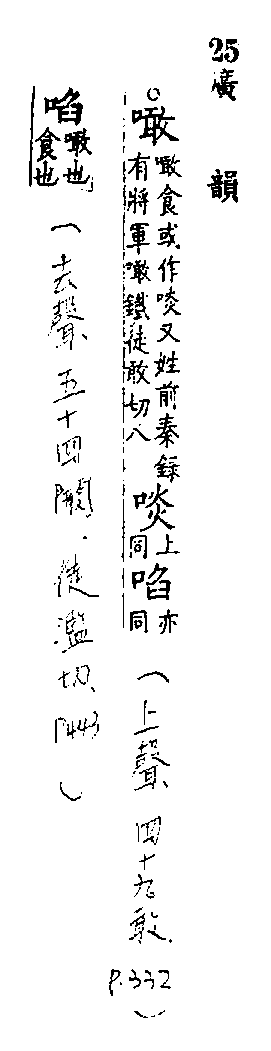 25廣韻
。噉噉食或作啖又姓前秦錄有將軍噉鐵徒敢切八啖上同啗亦同(上聲、四十九敢. P.332)
啗噉也食也(去聲、五十四闞.徒濫切、P443)